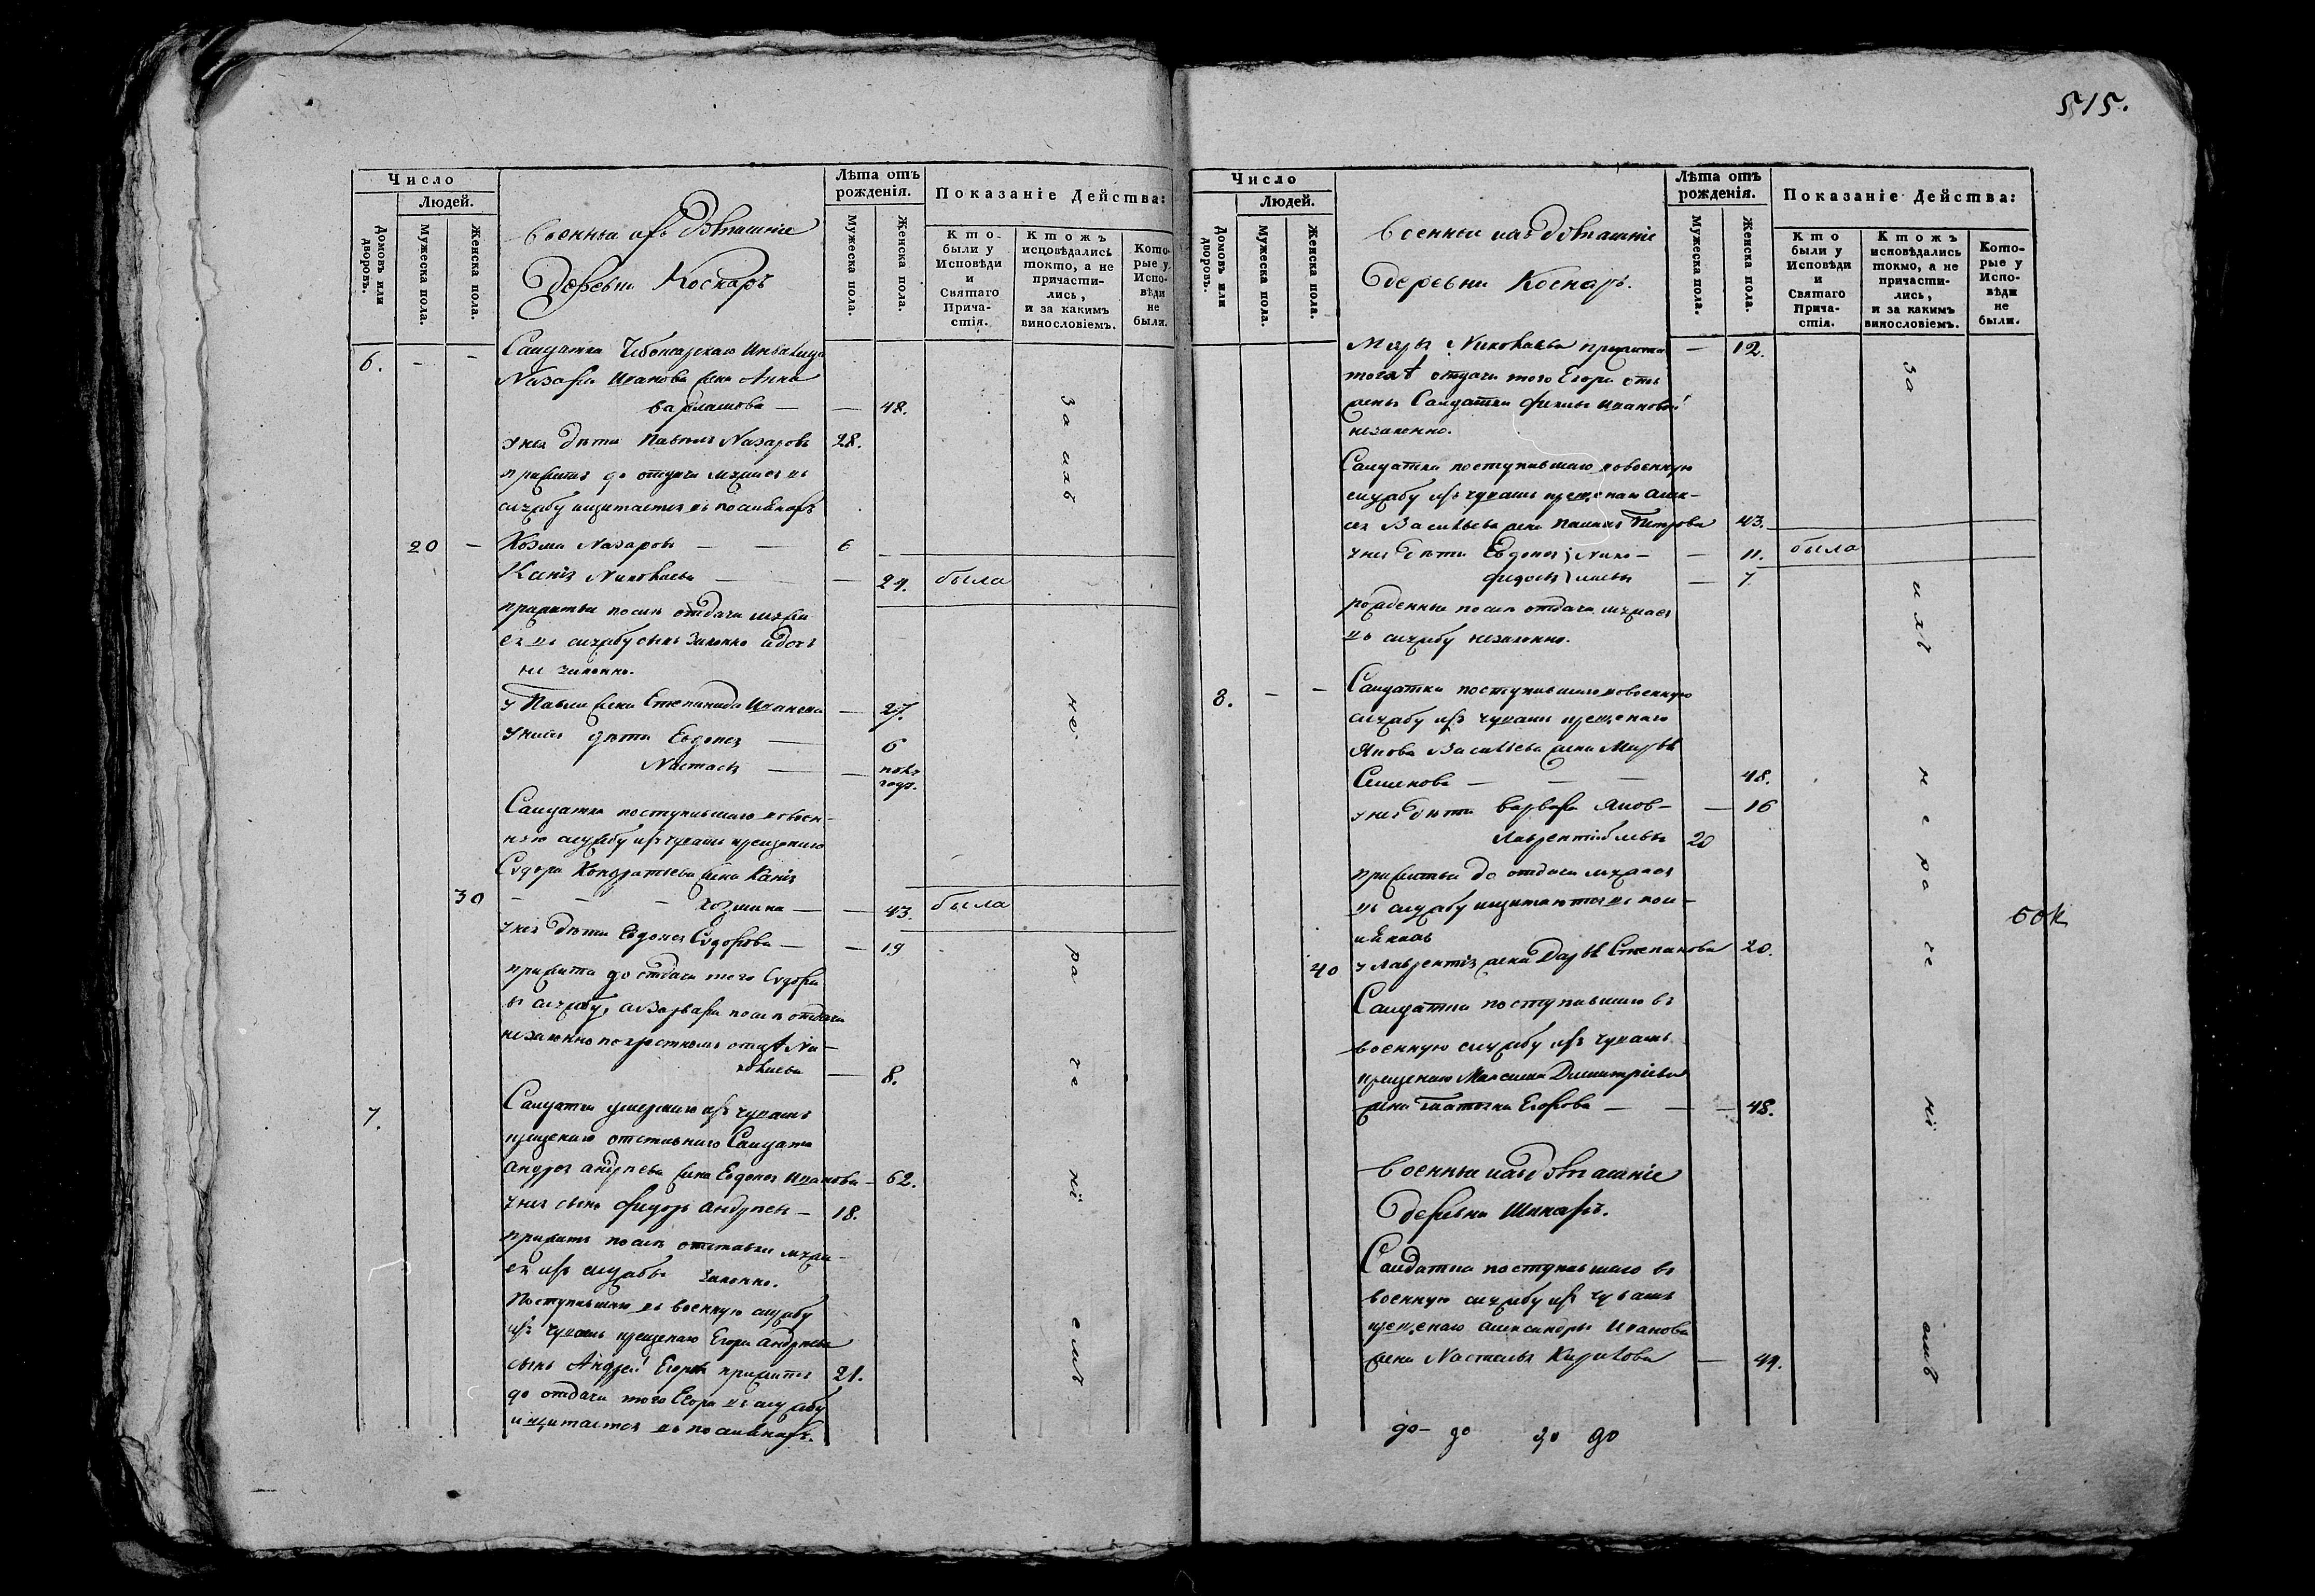 515.
Число
Людей.
Домовъ или дворовъ.
Мужеска пола.
Женска пола.
Военныи изъ домашніе
Деревни Коснаръ
Лѣта отъ рожденія.
Мужеска пола.
Женска пола.
Показаніе Действа:
Кто были у Исповѣди и Святаго Причастія.
Ктожъ исповѣдались токмо, а не причастились, и за какимъ винословіемъ.
Которые у Исповѣди не были.
6. - - Салдатка Чебоксарскаго Инвалида
Назара Иванова жена Анна
Варламова — — 48.
у нея дѣти Павелъ Назаровъ 28.
прижитъ до отдачи мужа ея въ
службу щитается въ
20 — Козма Назаровъ — — 6
Никонаева — — 21. была
прижиты послѣ отдачи мужа
ея въ службу сынъ законно а дочь
не законно.
у Павла жена Степанида Иванова — 27.
у нихъ дѣти Евдокея — 6
Настасья — — полъ года.
Салдатка поступившаго в воен-
ную службу изъ чувашъ крещенаго
Сидора Кондратьева жена
30 — — — Козмина — — 43. была
у нея дѣти Евдокея Сидорова — — 19
прижита до отдачи того Сидора
въ службу, а Варвара послѣ отдачи
незаконно по крестномъ отцѣ Ни-
колаева — 8.
7. Салдатки умершаго изъ чувашъ
крещенаго отставнаго Салдата
Андрея Андреева жена Евдокея Иванова — 62.
у нея сынъ Фидоръ Андреевъ — 18.
прижитъ послѣ отставки мужа
ея изъ службы законно.
Поступившаго въ военную службу
изъ чувашъ крещенаго Егора Андреева
сынъ Андрей Егоровъ прижитъ 21.
до отдачи того Егора въ службу
и щитается въ
за ихъ не ра че ні емъ
Число
Людей.
Домовъ или дворовъ.
Мужеска пола.
Женска пола.
Военныи ихъ домашніе
деревни Коснаръ.
Лѣта отъ рожденія.
Мужеска пола.
Женска пола.
Показаніе Действа:
Кто были у Исповѣди и Святаго Причастія.
Ктожъ исповѣдались токмо, а не причастились, и за какимъ винословіемъ.
Которые у Исповѣди не были.
Марья Николаева прижита — 12.
послѣ отдачи того Егора отъ
жены Салдатки Фиклы Ивановой
незаконно.
Салдатка поступившаго в военную
службу изъ чувашъ крещенаго Алек-
сея Васильева жена Петрова 43.
у нея дѣти Евдокея Нико- — 11. была
Фидосья лаевы — 7
рожденны послѣ отдачи мужа ея
въ службу незаконно.
8. - - Салдатка поступившаго в военную
службу изъ чувашъ крещенаго
Якова Васильева жена Марья
Семенова — — — 48.
у нея дѣти Варвара Яков- — 16
Лаврентій левы 20
прижиты до отдачи мужа ея
въ службу щитаются въ
40 у Лаврентія жена Дарья Степанова 20.
Салдатка поступившаго въ
военную службу изъ чувашъ
крещенаго Максима Димитріева
жена Татьяна Егорова — — — 48.
Военныи ихъ домашніе
деревни Шинаръ.
Салдатка поступившаго въ
военную службу изъ чувашъ
крещенаго Александра Иванова
жена Настасья Кирилова — 49.
за ихъ не ра че ні емъ